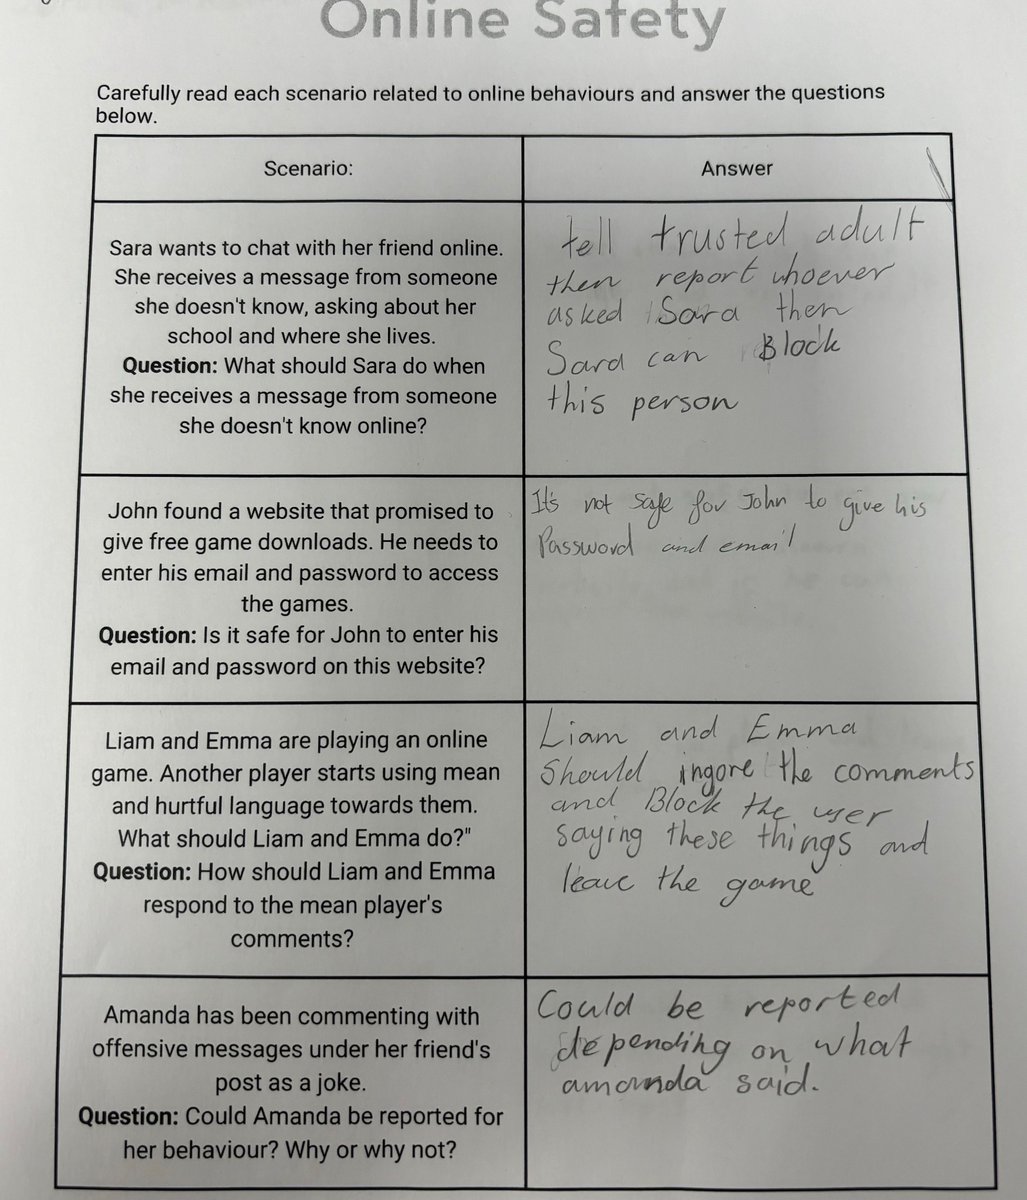 Online Safety
Carefully read each scenario related to online behaviours and answer the questions
below.
Scenario:
Answer
Sara wants to chat with her friend online.
She receives a message from someone
she doesn't know, asking about her
school and where she lives.
Question: What should Sara do when
she receives a message from someone
she doesn't know online?
tell trusted adult
then report whoever
asked Sara then
Sara can Block
this person
John found a website that promised to
give free game downloads. He needs to
enter his email and password to access
the games.
Question: Is it safe for John to enter his
email and password on this website?
It's not safe for John to give his
Password and email
Liam and Emma are playing an online
game. Another player starts using mean
and hurtful language towards them.
What should Liam and Emma do?"
Question: How should Liam and Emma
respond to the mean player's
comments?
Liam and Emma
Should ingore the comments
and Block the user
saying these things and
leave the game
Amanda has been commenting with
offensive messages under her friend's
post as a joke.
Question: Could Amanda be reported for
her behaviour? Why or why not?
Could be reported
depending on what
amanda said.